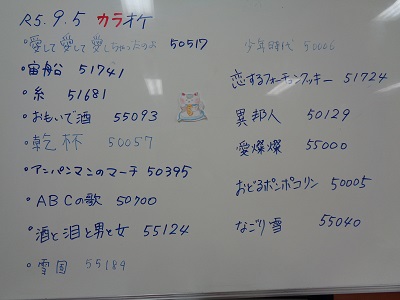 R5.9.5 カラオケ
・愛して愛して愛しちゃったのよ 50517
・宙船 51741
・糸 51681
・おもいで酒 55093
・乾杯 50057
・アンパンマンのマーチ 50395
・ABCの歌 50700
・酒と泪と男と女 55124
・雪国 55184
少年時代 50006
恋するフォーチュンクッキー 51724
異邦人 50129
愛燦燦 55000
おどるポンポコリン 50005
なごり雪 55040